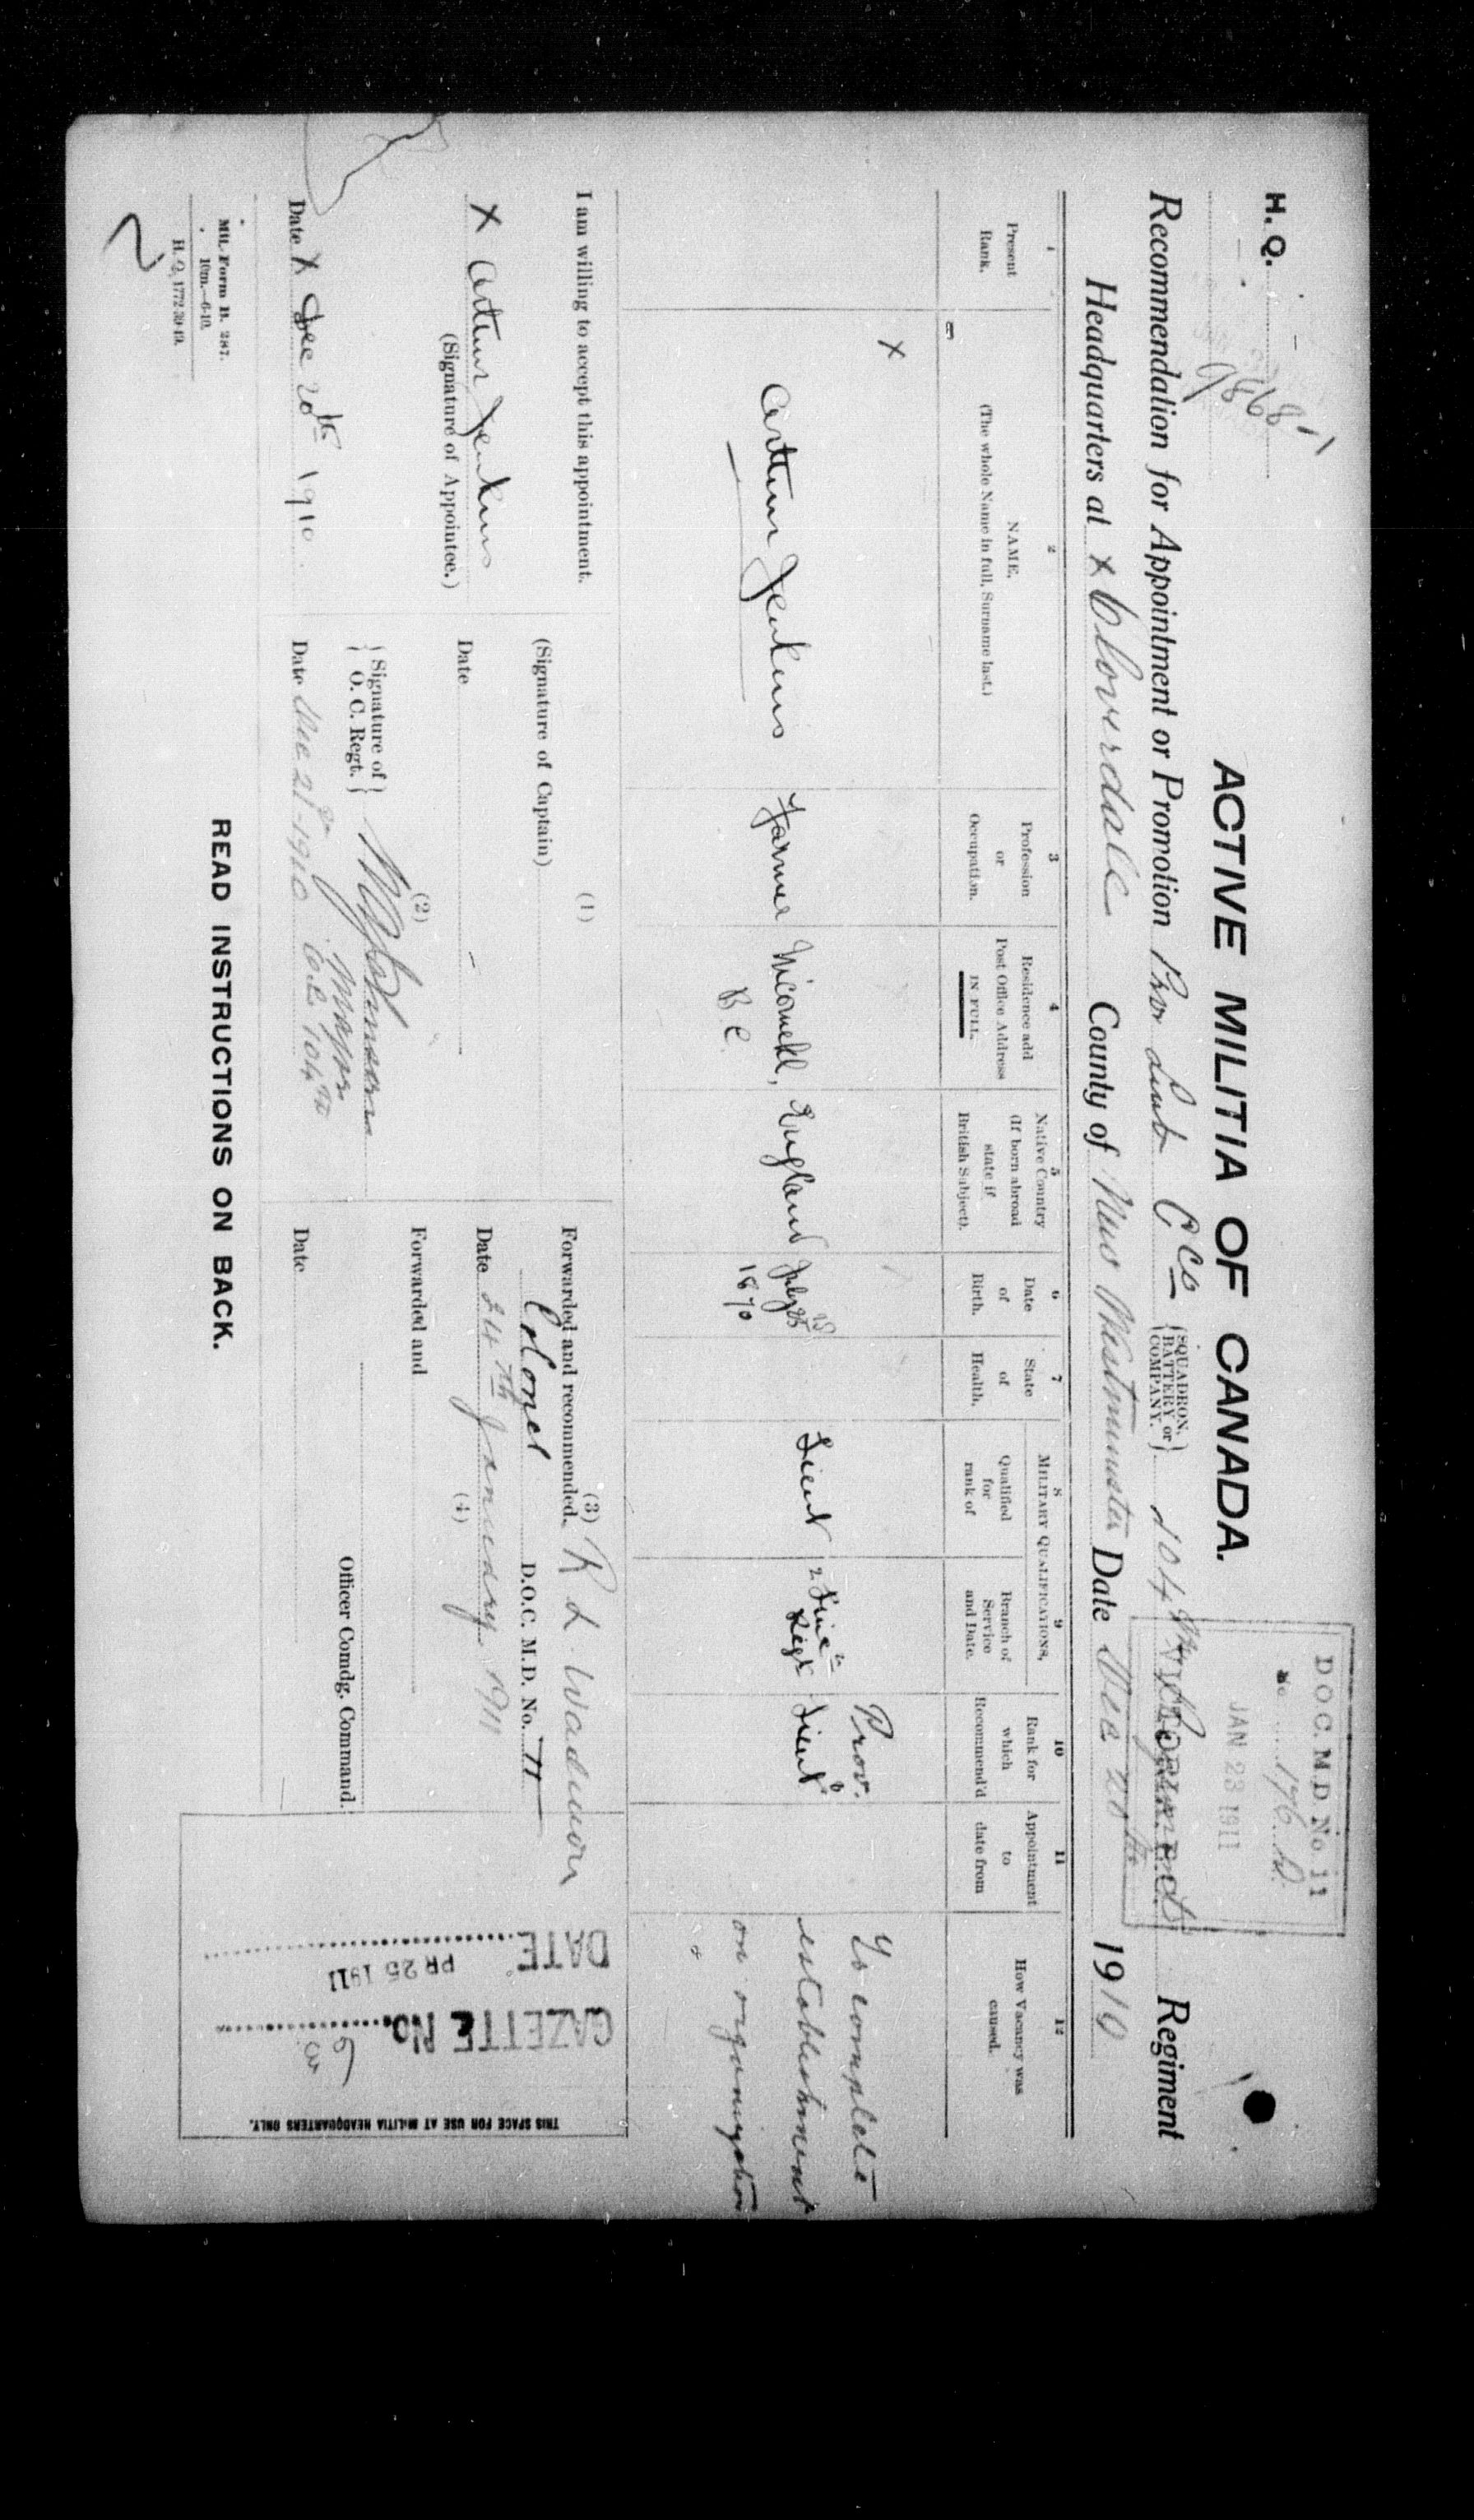 H. Q. 9868-1
DOC. M.D. No. 11
No. 176
JAN 23 1911
VICTORIA, B.C.
ACTIVE MILITIA OF CANADA.
Recommendation for Appointment or Promotion Prov Lieut C Co {SQUADRON, BATTERY or COMPANY.} 104th Regiment
Headquarters at x Cloverdale County of New Westminster Date Dec 20th 1910
1 Present Rank.
2 NAME. (The whole Name in full, Surname last.)
3 Profession or Occupation.
4 Residence add Post Office Address IN FULL.
5 Native Country (If born abroad state if British Subject).
6 Date of Birth.
7 State of Health.
MILITARY QUALIFICATIONS,
8 Qualified for rank of
9 Branch of Service and Date.
10 Rank for which Recommend'd
11 Appointment to date from
12 How Vacancy was caused.
x
Arthur Jenkins
Farmer
Nicomekl,
B C
England
July 25
1870
Lieut
Regt
Prov.
Lieut
To complete
establishment
on organization
I am willing to accept this appointment.
x Arthur Jenkins
(Signature of Appointee.)
Date x Dec 20th 1910
(1)
(Signature of Captain)
Date
(2)
{Signature of O. C. Regt.}
Major
Date Dec 21st 1910 O.C. 104th
(3)
Forwarded and recommended. R L Wadmore
Colonel D.O.C. M.D. No. 11
Date 24th January 1911
(4)
Forwarded and
Officer Comdg. Command.
Date
GAZETTE No.
DATE PR 25 1911
THIS SPACE FOR USE AT MILITIA HEADQUARTERS ONLY.
Mil. Form B. 287.
10m.—6-10.
H. Q. 1772-39-19.
READ INSTRUCTIONS ON BACK.